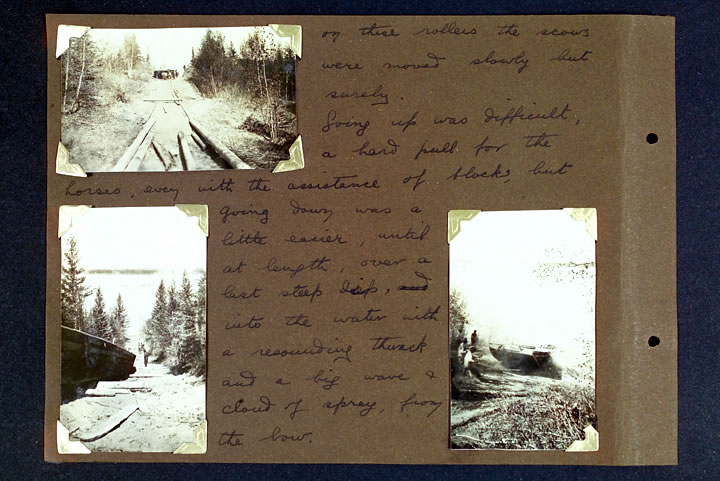 on these rollers the scows
were moved slowly but
surely.
Going up was difficult,
a hard pull for the
horses, even with the assistance of blocks, but
going down was a
little easier, until
at length, over a
last steep dip, and
into the water with
a resounding thwack
and a big wave &
cloud of spray, from
the bow.